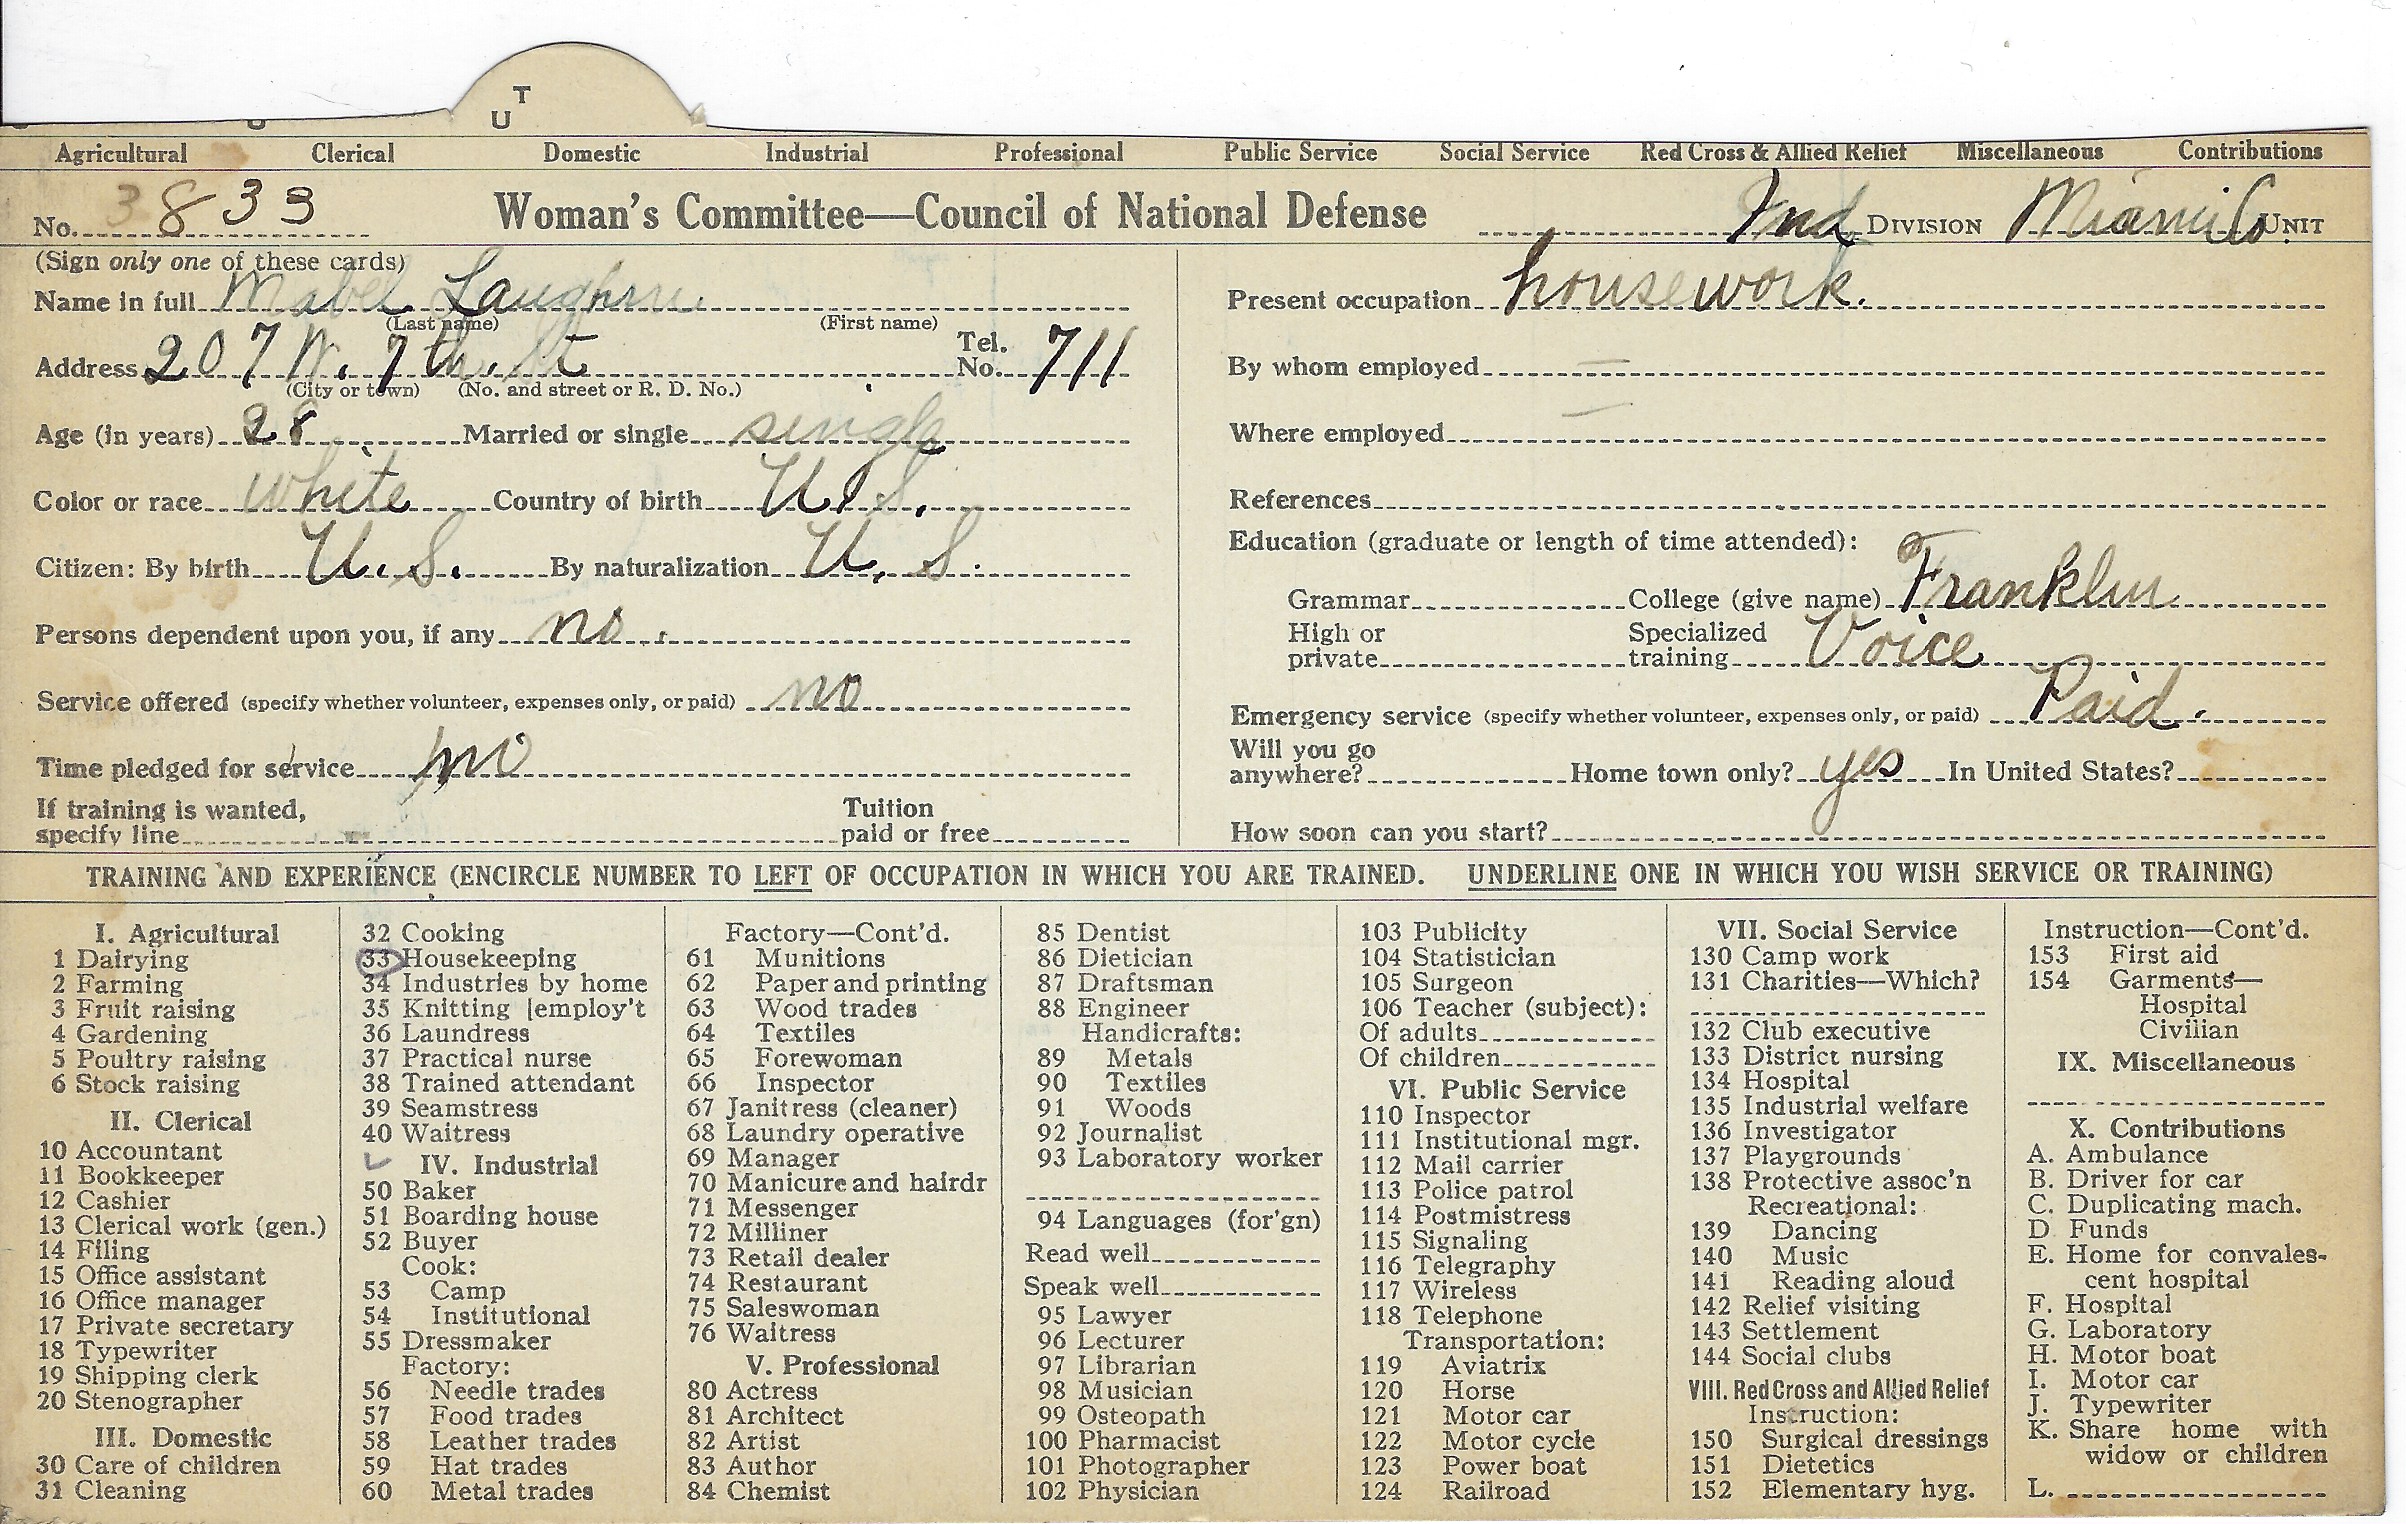 T
U
Agricultural Clerical Domestic Industrial Professional Public Service Social Service Red Cross & Allied Relief Miscellaneous Contributions
No. 3833 Woman's Committee—Council of National Defense Ind. DIVISION Miami Co. UNIT
(Sign only one of these cards)
Name in full Mabel
(Last name) (First name)
Address 207 W. 7th. St Tel. No. 711
(City or town) (No. and street or R. D. No.)
Age (in years) 28 Married or single single
Color or race white Country of birth U.S.
Citizen: By birth U.S. By naturalization U.S.
Persons dependent upon you, if any no.
Service offered (specify whether volunteer, expenses only, or paid) no
Time pledged for service no
If training is wanted, specify line Tuition paid or free
Present occupation housework.
By whom employed —
Where employed —
References
Education (graduate or length of time attended):
Grammar College (give name) Franklin
High or private Specialized training Voice
Emergency service (specify whether volunteer, expenses only, or paid) Paid.
Will you go anywhere? Home town only? yes In United States?
How soon can you start?
TRAINING AND EXPERIENCE (ENCIRCLE NUMBER TO LEFT OF OCCUPATION IN WHICH YOU ARE TRAINED. UNDERLINE ONE IN WHICH YOU WISH SERVICE OR TRAINING)
I. Agricultural
1 Dairying
2 Farming
3 Fruit raising
4 Gardening
5 Poultry raising
6 Stock raising
II. Clerical
10 Accountant
11 Bookkeeper
12 Cashier
13 Clerical work (gen.)
14 Filing
15 Office assistant
16 Office manager
17 Private secretary
18 Typewriter
19 Shipping clerk
20 Stenographer
III. Domestic
30 Care of children
31 Cleaning
32 Cooking
33 Housekeeping
34 Industries by home
35 Knitting [employ't
36 Laundress
37 Practical nurse
38 Trained attendant
39 Seamstress
40 Waitress
IV. Industrial
50 Baker
51 Boarding house
52 Buyer
Cook:
53 Camp
54 Institutional
55 Dressmaker
Factory:
56 Needle trades
57 Food trades
58 Leather trades
59 Hat trades
60 Metal trades
Factory—Cont'd.
61 Munitions
62 Paper and printing
63 Wood trades
64 Textiles
65 Forewoman
66 Inspector
67 Janitress (cleaner)
68 Laundry operative
69 Manager
70 Manicure and hairdr
71 Messenger
72 Milliner
73 Retail dealer
74 Restaurant
75 Saleswoman
76 Waitress
V. Professional
80 Actress
81 Architect
82 Artist
83 Author
84 Chemist
85 Dentist
86 Dietician
87 Draftsman
88 Engineer
Handicrafts:
89 Metals
90 Textiles
91 Woods
92 Journalist
93 Laboratory worker
94 Languages (for'gn)
Read well
Speak well
95 Lawyer
96 Lecturer
97 Librarian
98 Musician
99 Osteopath
100 Pharmacist
101 Photographer
102 Physician
103 Publicity
104 Statistician
105 Surgeon
106 Teacher (subject):
Of adults
Of children
VI. Public Service
110 Inspector
111 Institutional mgr.
112 Mail carrier
113 Police patrol
114 Postmistress
115 Signaling
116 Telegraphy
117 Wireless
118 Telephone
Transportation:
119 Aviatrix
120 Horse
121 Motor car
122 Motor cycle
123 Power boat
124 Railroad
VII. Social Service
130 Camp work
131 Charities—Which?
132 Club executive
133 District nursing
134 Hospital
135 Industrial welfare
136 Investigator
137 Playgrounds
138 Protective assoc'n
Recreational:
139 Dancing
140 Music
141 Reading aloud
142 Relief visiting
143 Settlement
144 Social clubs
VIII. Red Cross and Allied Relief
Instruction:
150 Surgical dressings
151 Dietetics
152 Elementary hyg.
Instruction—Cont'd.
153 First aid
154 Garments—
Hospital
Civilian
IX. Miscellaneous
X. Contributions
A. Ambulance
B. Driver for car
C. Duplicating mach.
D Funds
E. Home for convales-
cent hospital
F. Hospital
G. Laboratory
H. Motor boat
I. Motor car
J. Typewriter
K. Share home with
widow or children
L.